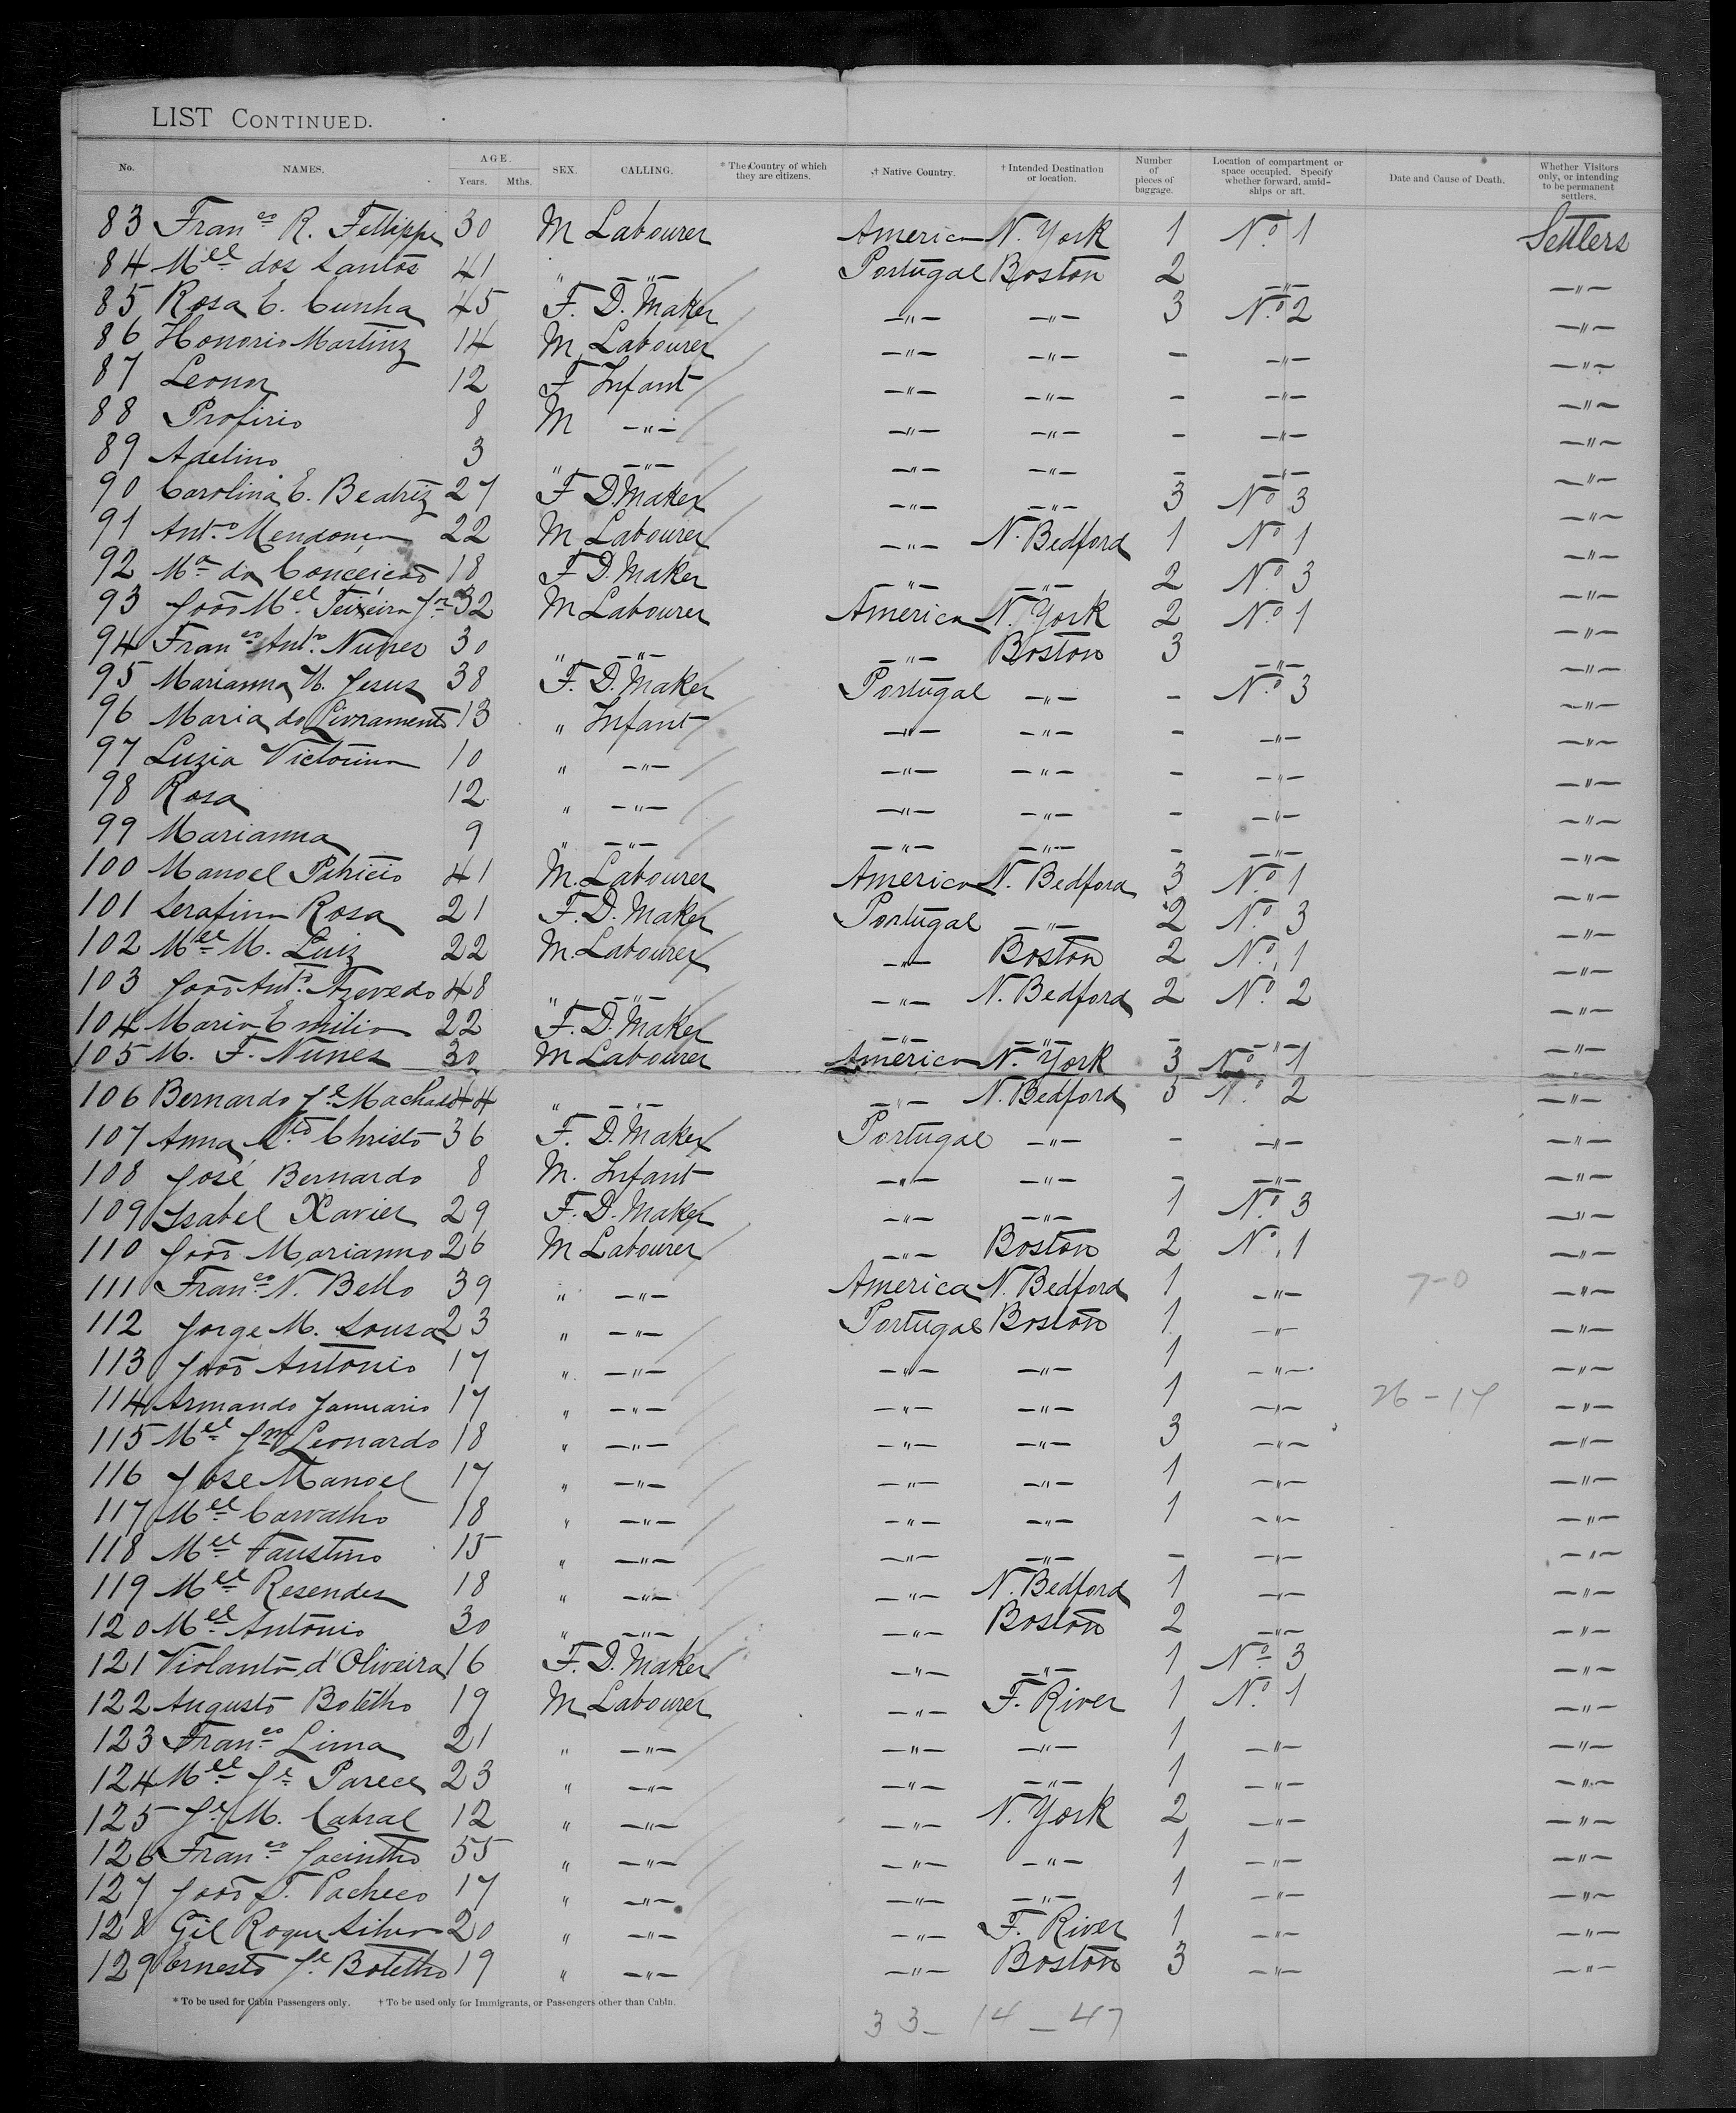 LIST CONTINUED.
No. NAMES. AGE. Years. Mths. SEX. CALLING. * The Country of which they are citizens. † Native Country. † Intended Destination or location. Number of pieces of baggage. Location of compartment or space occupied. Specify whether forward, amidships or aft. Date and Cause of Death. Whether Visitors only, or intending to be permanent settlers.
83 Franco R. Fellippe 30 M Labourer America N. York 1 No. 1 Settlers
84 Mel dos Santos 41 " —"— Portugal Boston 2 —"— —"—
85 Rosa E. Cunha 45 F. D. Maker —"— —"— 3 No. 2 —"—
86 Honorio Martinz 14 M Labourer —"— —"— — —"— —"—
87 Leonor 12 F Infant —"— —"— — —"— —"—
88 Profirio 8 M —"— —"— —"— — —"— —"—
89 Adelino 3 " —"— —"— —"— — —"— —"—
90 Carolina E. Beatriz 27 F D. Maker —"— —"— 3 No 3 —"—
91 Anto. Mendonça 22 M Labourer —"— N. Bedford 1 No 1 —"—
92 Ma da Conceição 18 F D. Maker —"— —"— 2 No. 3 —"—
93 João Mel Teixeira Jr 32 M Labourer America N. York 2 No. 1 —"—
94 Franco Anto. Nunes 30 " —"— —"— Boston 3 —"— —"—
95 Marianna H. Jesus 38 F. D. Maker Portugal —"— — No. 3 —"—
96 Maria do Livramento 13 " Infant —"— —"— — —"— —"—
97 Luzia Victorina 10 " —"— —"— —"— — —"— —"—
98 Rosa 12 " —"— —"— —"— — —"— —"—
99 Marianna 9 " —"— —"— —"— — —"— —"—
100 Manoel Patricio 41 M. Labourer America N. Bedford 3 No. 1 —"—
101 Serafina Rosa 21 F. D. Maker Portugal —"— 2 No. 3 —"—
102 Mel M. Luiz 22 M. Labourer —"— Boston 2 No. 1 —"—
103 João Anto. Azevedo 48 " —"— —"— N. Bedford 2 No. 2 —"—
104 Maria Emilia 22 F. D. Maker —"— —"— — —"— —"—
105 M. F. Nunes 30 M Labourer America N. York 3 No. 1 —"—
106 Bernardo Je Machado 44 " —"— —"— N. Bedford 5 No. 2 —"—
107 Anna Christo 36 F. D. Maker Portugal —"— — —"— —"—
108 José Bernardo 8 M. Infant —"— —"— — —"— —"—
109 Isabel Xavier 29 F. D. Maker —"— —"— 1 No. 3 —"—
110 João Marianno 26 M Labourer —"— Boston 2 No. 1 —"—
111 Franco N. Bello 39 " —"— America N. Bedford 1 —"— 7-0 —"—
112 Jorge M. Sousa 23 " —"— Portugal Boston 1 —"— —"—
113 João Antonio 17 " —"— —"— —"— 1 —"— —"—
114 Armando Januario 17 " —"— —"— —"— 1 —"— 26 - 14 —"—
115 Mel Jm Leonardo 18 " —"— —"— —"— 3 —"— —"—
116 Jose Manoel 17 " —"— —"— —"— 1 —"— —"—
117 Mel Carvalho 18 " —"— —"— —"— 1 —"— —"—
118 Mel Faustino 15 " —"— —"— —"— — —"— —"—
119 Mel Resendes 18 " —"— —"— N. Bedford 1 —"— —"—
120 Mel Antonio 30 " —"— —"— Boston 2 —"— —"—
121 Violanto d'Oliveira 16 F. D. Maker —"— —"— 1 No. 3 —"—
122 Augusto Botelho 19 M Labourer —"— F. River 1 No. 1 —"—
123 Franco Lima 21 " —"— —"— —"— 1 —"— —"—
124 Mel Je Parece 23 " —"— —"— —"— 1 —"— —"—
125 Je M. Cabral 12 " —"— —"— N. York 2 —"— —"—
126 Franco Jacintho 55 " —"— —"— —"— 1 —"— —"—
127 João T. Pacheco 17 " —"— —"— —"— 1 —"— —"—
128 Gil Roque Silva 20 " —"— —"— F. River 1 —"— —"—
129 Ernesto Je Botelho 19 " —"— —"— Boston 3 —"— —"—
* To be used for Cabin Passengers only. † To be used only for Immigrants, or Passengers other than Cabin.
33 - 14 - 47